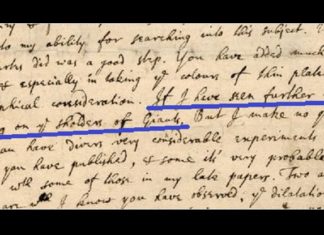 to my ability for searching into this subject.
did was a good step. You have added much
& especially in taking yᵉ colours of thin plate
consideration. If I have seen further
on yᵉ sholders of Giants. But I make no
have divers very considerable experiments
you have published, & some it's very probable
will some of those in my late papers. Two
I know you have observed, yᵉ dilatation